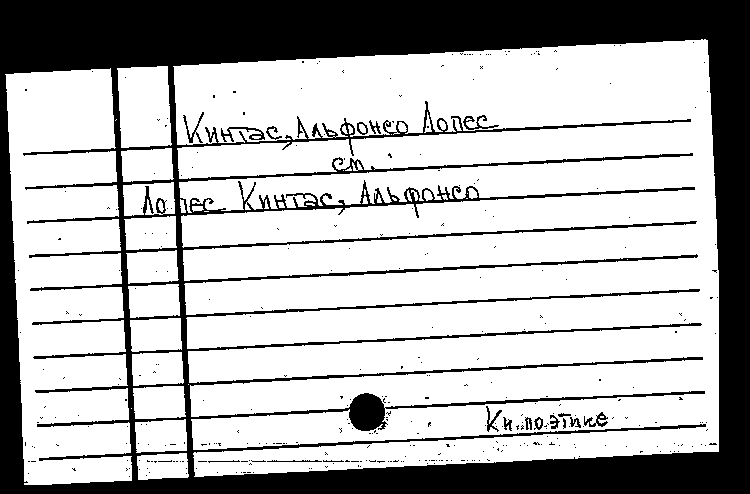 Кинтас, Альфонсо Лопес
см.
Лопес Кинтас, Альфонсо
Кн. поэтике